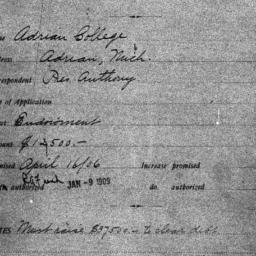 Adrian College
Adrian, Mich.
respondent Pres. Anthony
of Application
Endowment
$12500.—
mised April 16/06 Increase promised
authorized JAN -9 1909 do. authorized
TES Must raise $37500.— to clear debt